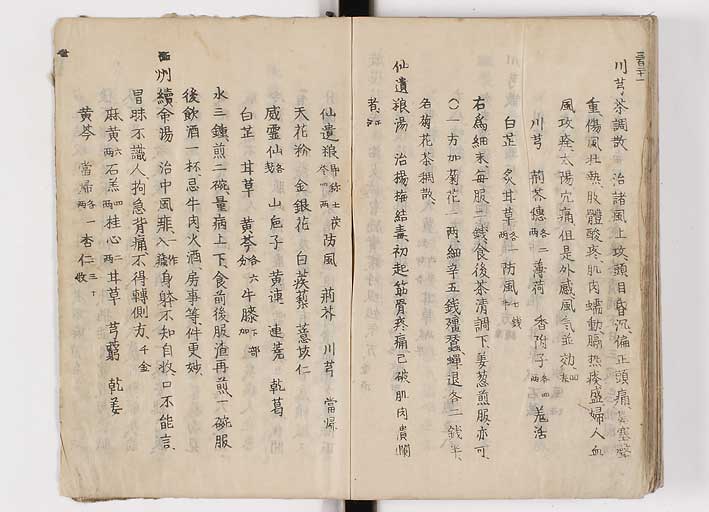 川芎茶調散 治諸風上攻頭目昏沉偏正頭痛鼻塞聲
重傷風壯熱肢體酸疼肌肉蠕動膈热痰盛婦人血
風攻疰太陽穴痛但是外感風氣並効
川芎 荊芥穗 各二兩 薄荷 香附子 各四兩 羌活
白芷 炙甘草 各一兩 防風 七錢
右爲細末每服二錢食後茶清調下姜葱煎服亦可
〇一方加菊花一兩細辛五錢殭蠶蟬退各二錢半
名菊花茶調散
仙遺粮湯 治楊梅結毒初起筋骨疼痛已破肌肉潰爛
者
仙遺粮 防風 荊芥 川芎 當㱕
天花粉 金銀花 白蒺藜 薏苡仁
威靈仙 各 山卮子 黄連 連荛 乾葛
白芷 甘草 黄芩 各六 牛膝 下部加
水三鍾煎二碗量病上下食前後服渣再煎一碗服
後飲酒一杯忌牛肉火酒房事等件更妙
州 續命湯 治中風痱 一作入臟 身躰不知自收口不能言
冒昧不識人拘急背痛不得轉側方 千金
麻黄 六兩 石羔 四兩 桂心 二兩 甘草 芎藭 乾姜
黄芩 當㱕 各一兩 杏仁 三十枚